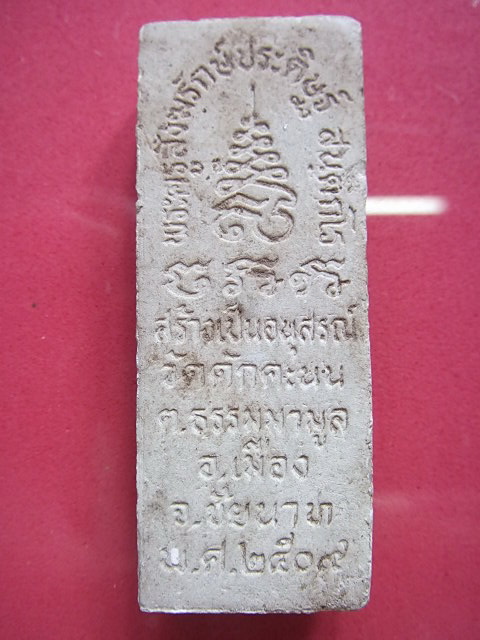 พระครูสังฆรักษ์ประดิษฐ์
สร้างเป็นอนุสรณ์
วัดดักคะนน
ต.ธรรมมามูล
อ.เมือง
จ.ชัยนาท
พ.ศ.๒๕๐๙